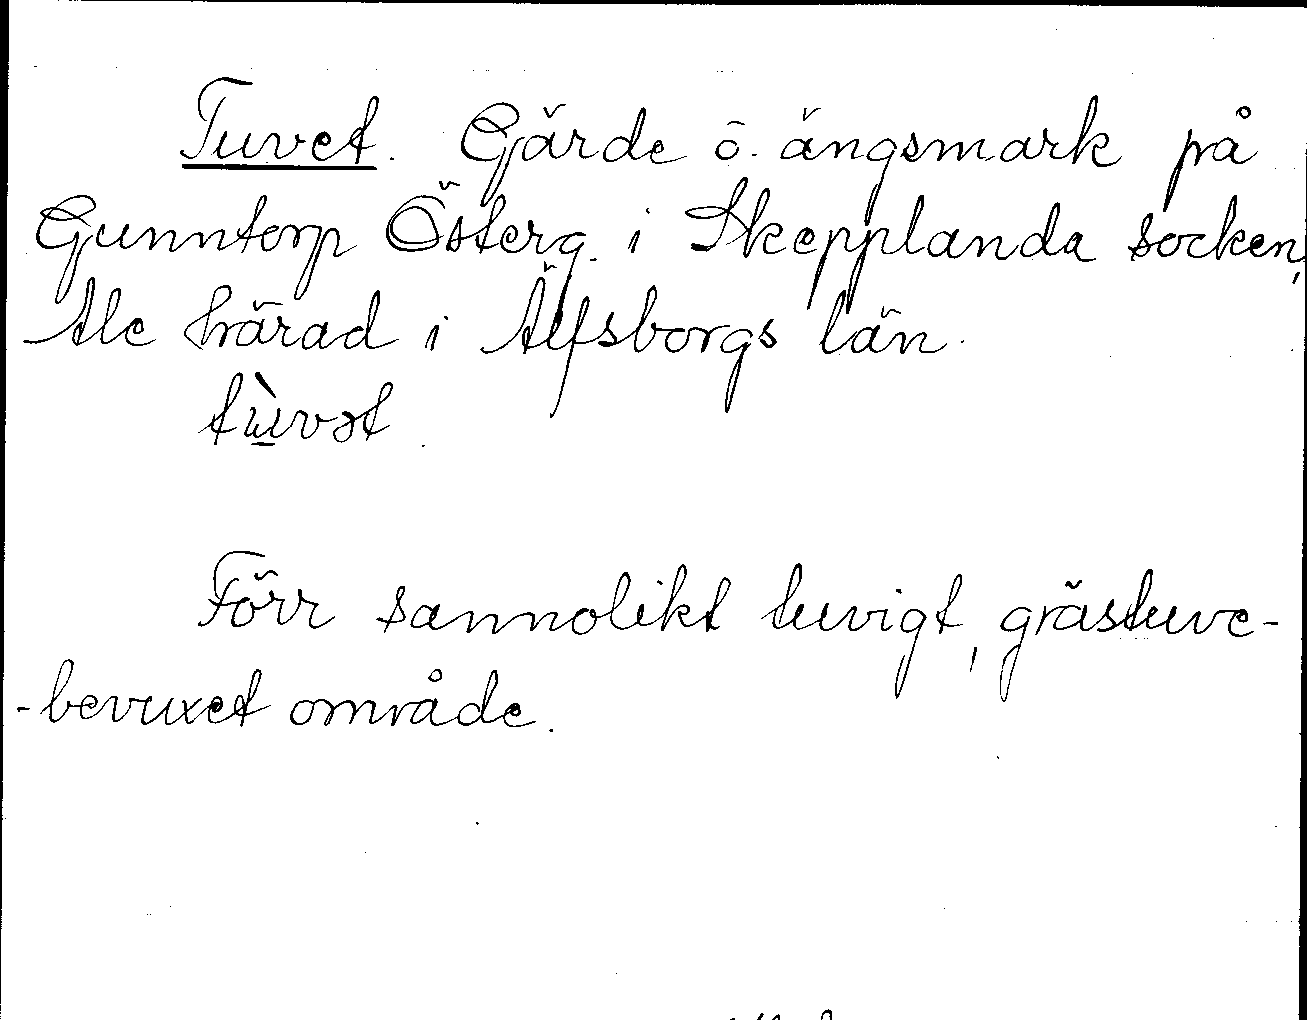 Tuvet. Gärde ö. ängsmark på
Gunntorp Österg. i Skepplanda socken,
Ale härad i Älfsborgs län.
tùvət
Förr sannolikt tuvigt, grästuve-
-bevuxet område.